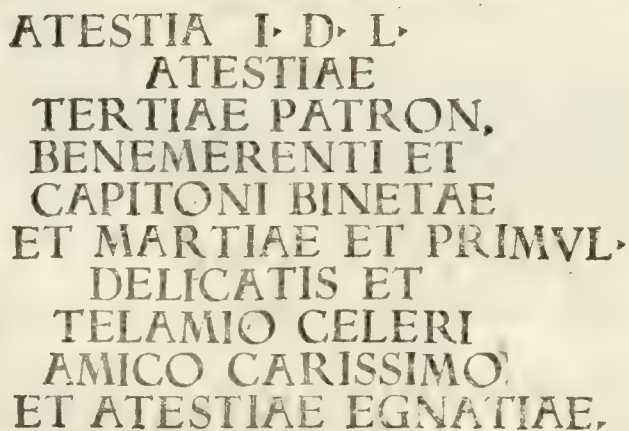 ATESTIA I· D· L·
ATESTIAE
TERTIAE PATRON.
BENEMERENTI ET
CAPITONI BINETAE
ET MARTIAE ET PRIMVL·
DELICATIS ET
TELAMIO CELERI
AMICO CARISSIMO
ET ATESTIAE EGNATIAE.